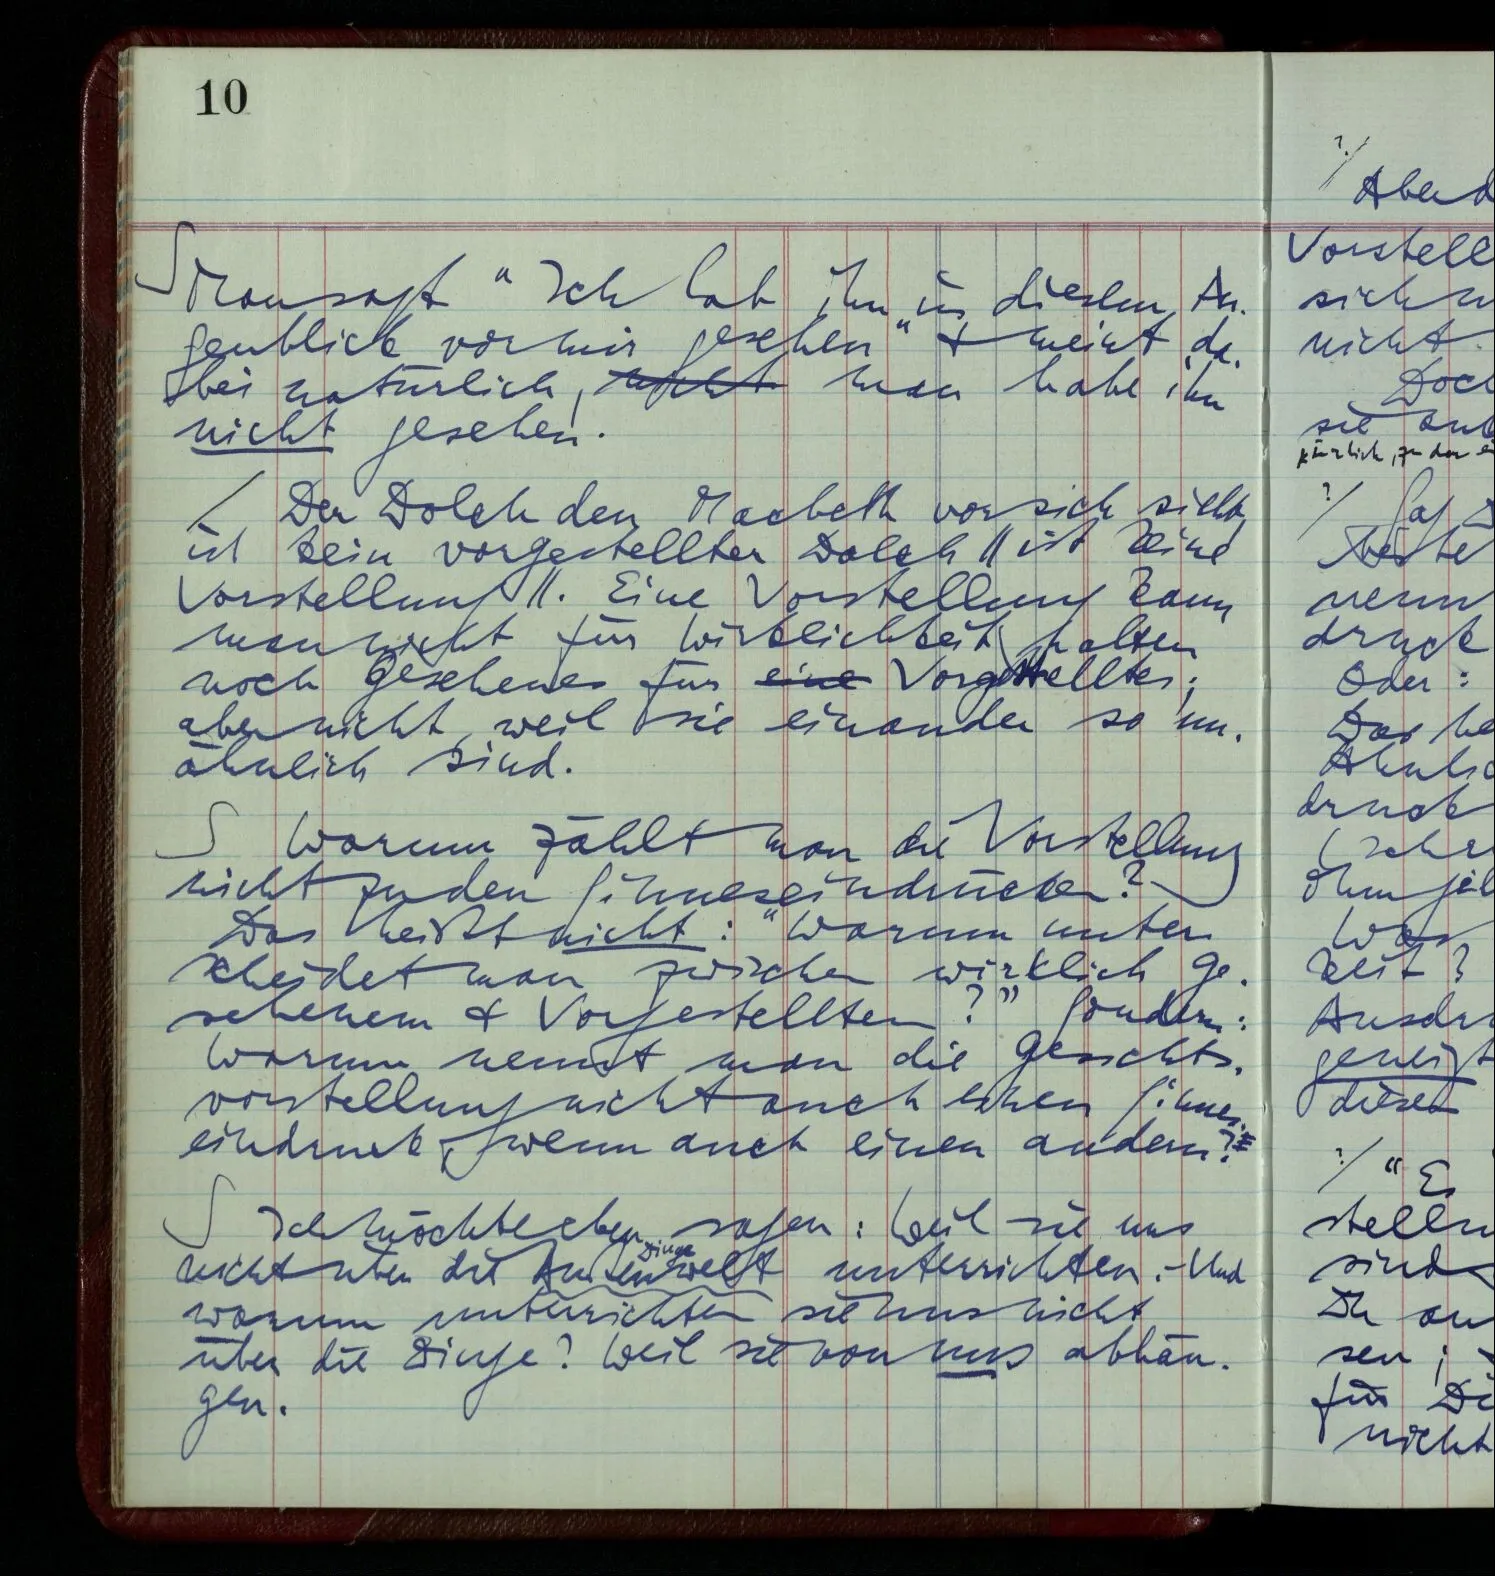 10
∫ Man sagt “Ich hab ihn in diesem Au-
genblick vor mir gesehen” & meint da-
bei natürlich, nicht man habe ihn
nicht gesehen.
/ Der Dolch den Macbeth vor sich sieht
ist kein vorgestellter Dolch // ist keine
Vorstellung //. Eine Vorstellung kann
man nicht für Wirklichkeit halten
noch Gesehenes für eine Vorgestelltes;
aber nicht, weil sie einander so un-
ähnlich sind.
∫ Warum zählt man die Vorstellung
nicht zu den Sinneseindrücken? –
Das heißt nicht: “Warum unter
scheidet man zwischen wirklich Ge-
sehenem & Vorgestelltem?” Sondern:
Warum nennt man die Gesichts-
vorstellung nicht auch einen Sinnes-
eindruck, wenn auch einen andern?
∫ Ich möchte eben sagen: Weil sie uns
Dinge
nicht über die Aussenwelt unterrichten. – Und
warum unterrichten sie uns nicht
über die Dinge? Weil sie von uns abhän-
gen.
?/
Vorstell
nicht.
sie
kürzlich, zu der
?/
wenn
druck
Oder:
Das he
druck
Was
keit?
Ausdr
geneigt
diesen
?/ “Es
stellu
sind
Du au
sen;
für Di
nicht